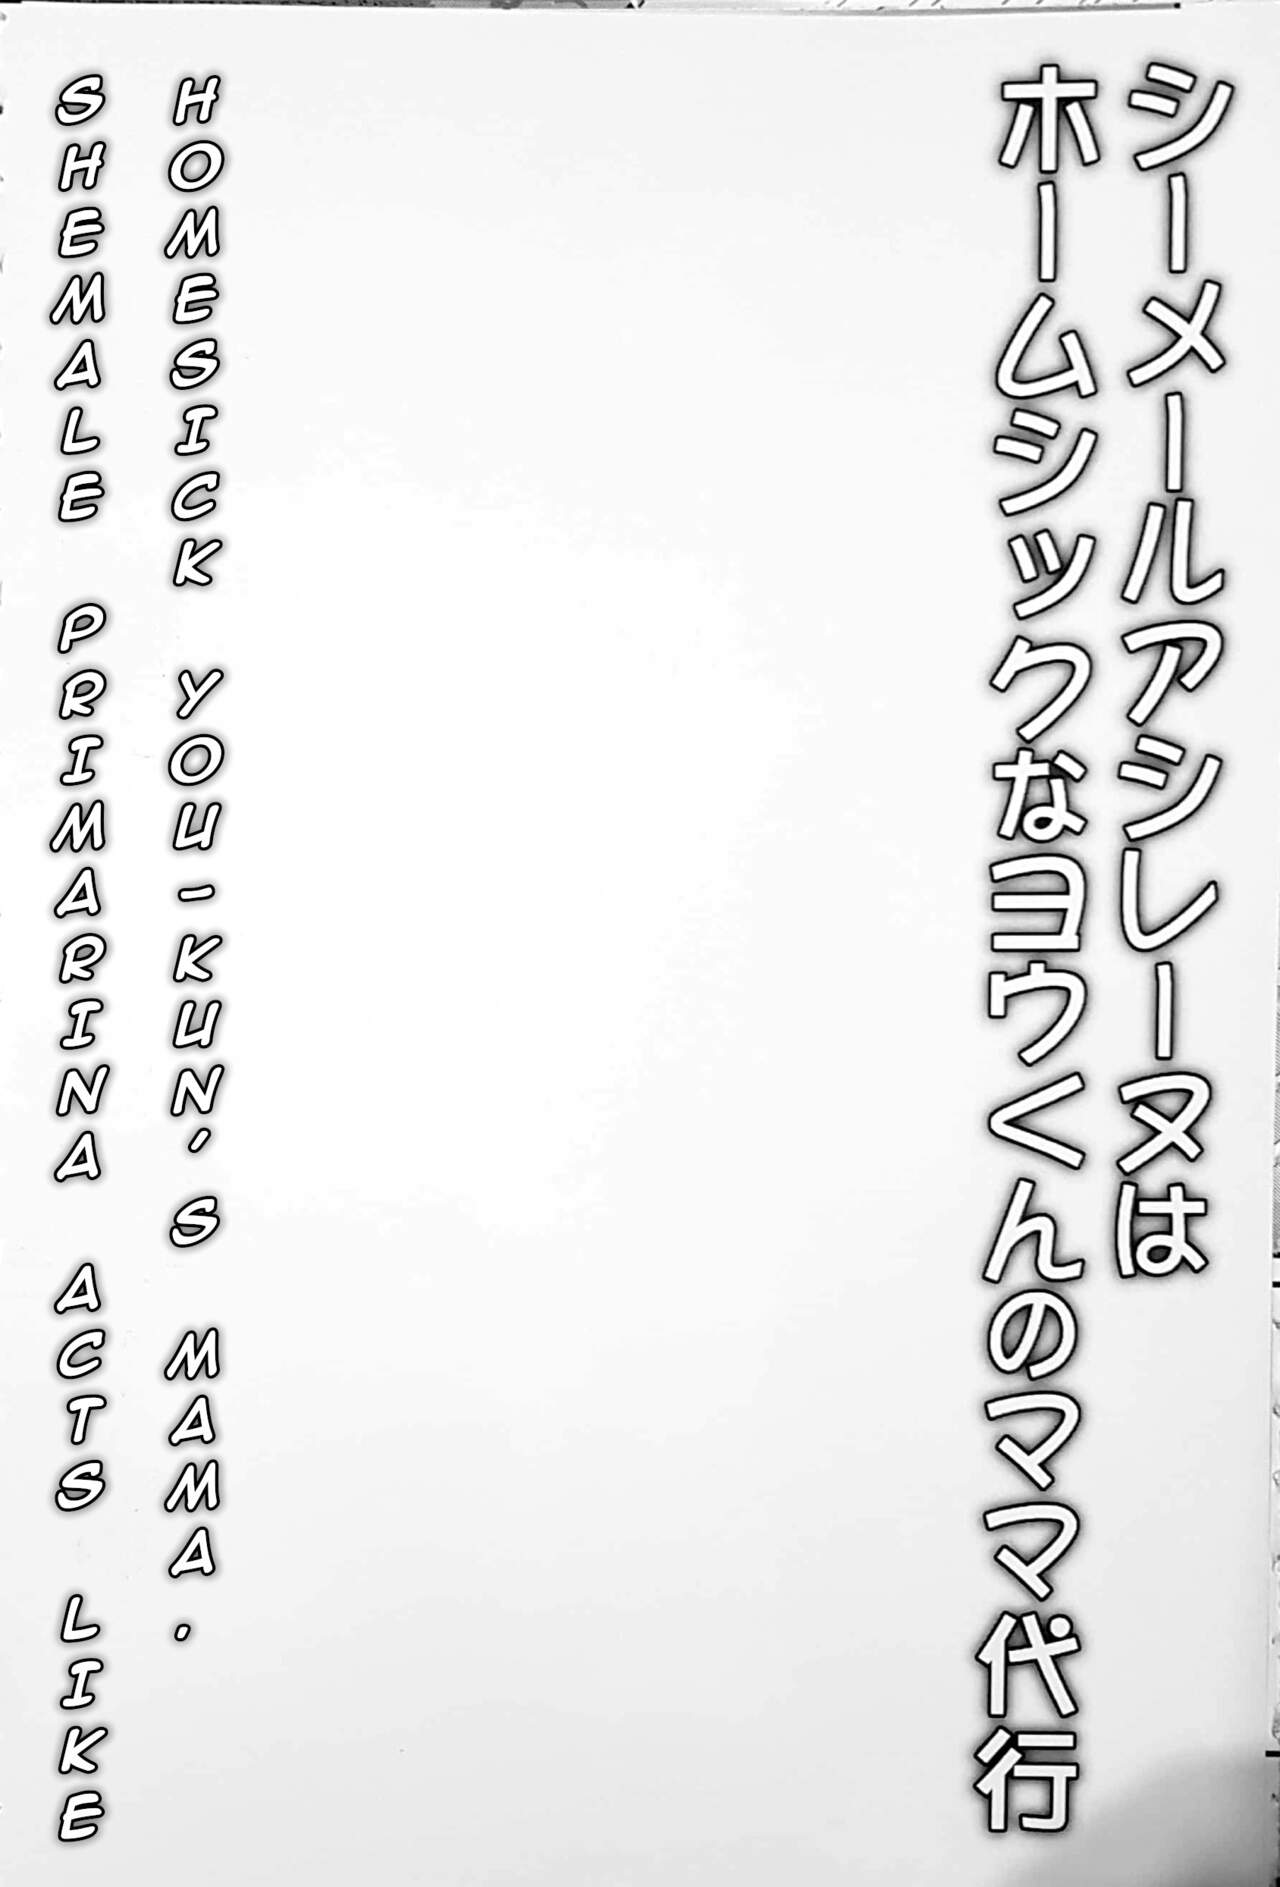 シーメールアシレーヌは
ホームシックなヨウくんのママ代行
SHEMALE PRIMARINA ACTS LIKE
HOMESICK YOU-KUN'S MAMA.